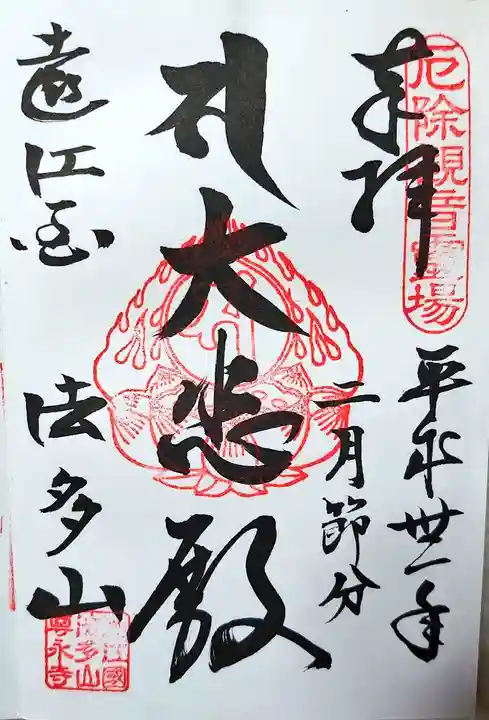 厄除観音霊場
奉拝
平成卅一年
二月節分
大悲殿
遠江国
法多山
遠江國
法多山
尊永寺